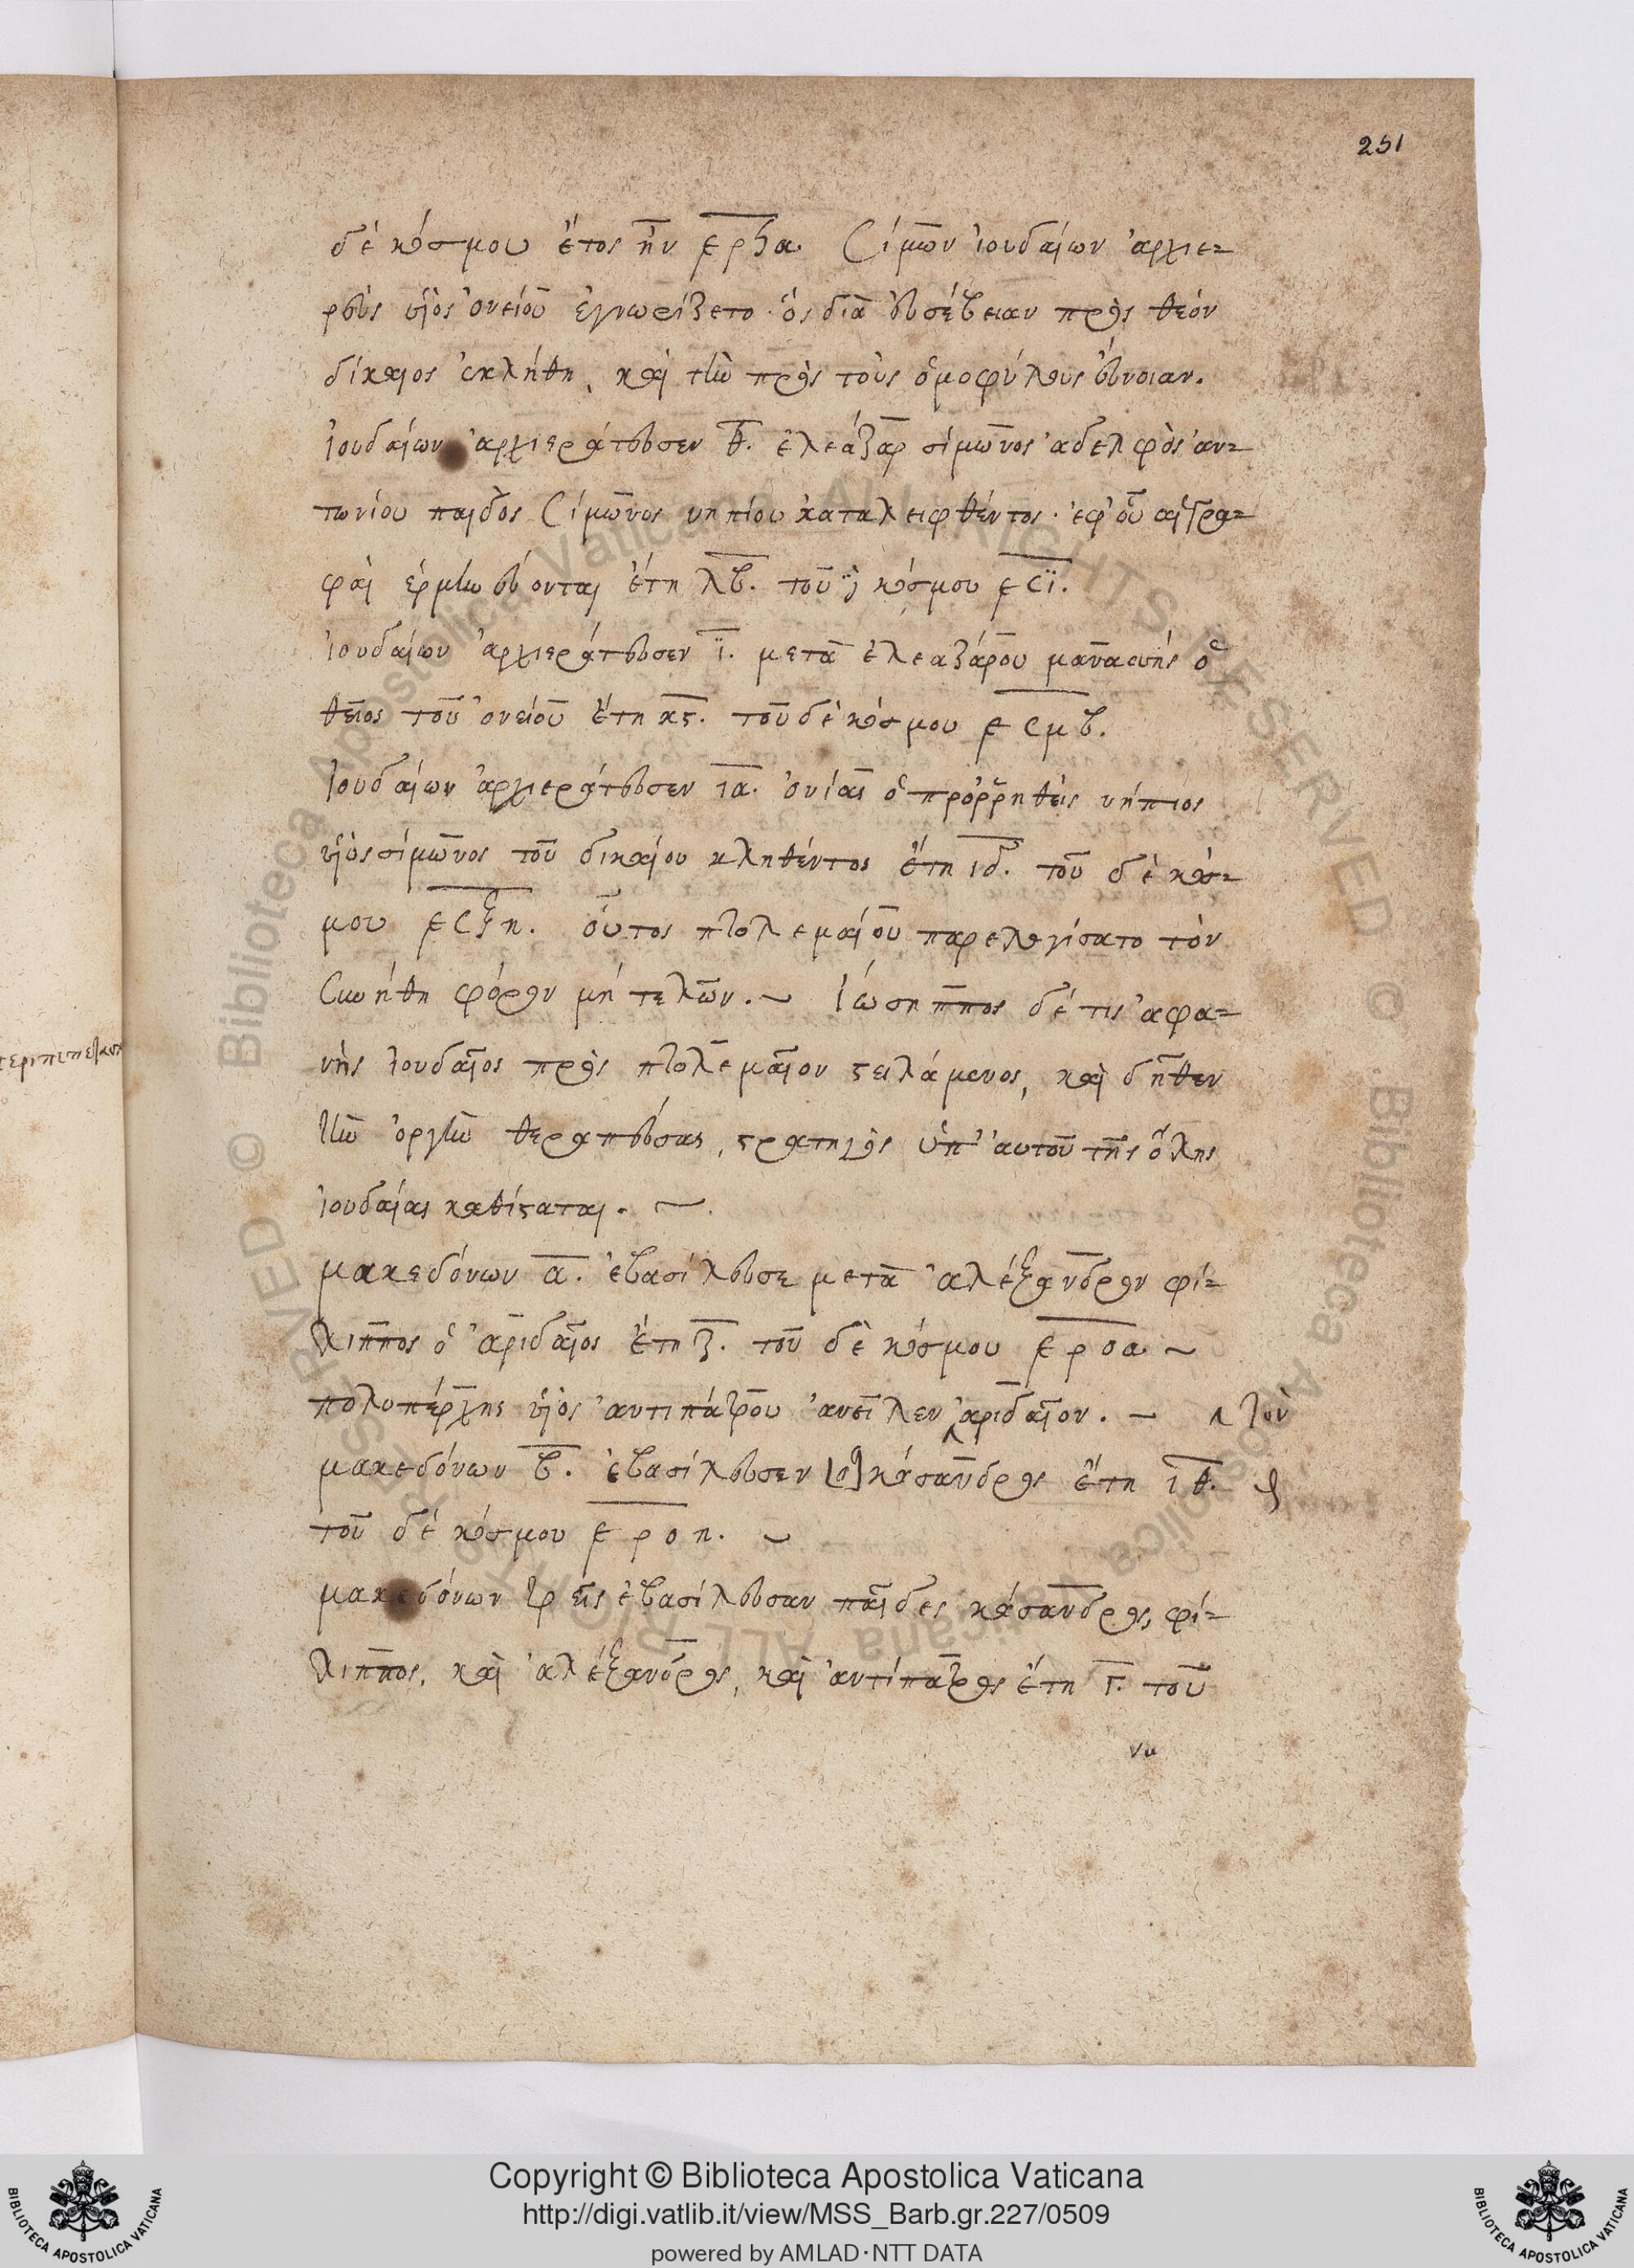 251
δὲ κόσμου ἔτος ἦν ͵ερϟα. Σίμων ἰουδαίων ἀρχιε=
ρεὺς υἱὸς ὀνείου ἐγνωρίζετο· ὃς διὰ εὐσέβειαν πρὸς θεὸν
δίκαιος ἐκλήθη, καὶ τὴν πρὸς τοὺς ὁμοφύλους εὔνοιαν.
ἰουδαίων ἀρχιεράτευσεν θ. ἐλεάζαρ σίμωνος ἀδελφὸς ἀν=
τωνίου παιδὸς Σίμωνος νηπίου καταλειφθέντος· ἐφ' οὗ αἱ γρα=
φαὶ ἑρμηνεύονται ἔτη λβ. τοῦ δὲ κόσμου ͵εσϊ.
ἰουδαίων ἀρχιεράτευσεν ϊ. μετὰ ἐλεαζάρου μανασσῆς ὁ
θεῖος τοῦ ὀνείου ἔτη κϛ. τοῦ δὲ κόσμου ͵εσμβ.
Ἰουδαίων ἀρχιεράτευσεν ια. ὀνίας ὁ προρρηθεὶς νήπιος
υἱὸς σίμωνος τοῦ δικαίου κληθέντος ἔτη ιδ. τοῦ δὲ κόσ=
μου ͵εσξη. οὗτος πτολεμαίου παρελογίσατο τὸν
Συνήθη φόρον μὴ τελῶν.~ Ἰώσηππος δέ τις ἀφα=
νὴς ἰουδαῖος πρὸς πτολεμαῖον στειλάμενος, καὶ δῆθεν
τὴν ὀργὴν θεραπεύσας, στρατηγὸς ὑπ' αὐτοῦ τῆς ὅλης
ἰουδαίας καθίσταται. ~.
μακεδόνων α. ἐβασίλευσε μετὰ ἀλέξανδρον φί=
λιππος ὁ ἀριδαῖος ἔτη ζ. τοῦ δὲ κόσμου ͵εροα ~
πολυπέρχης υἱὸς ἀντιπάτρου ἀνεῖλεν ‸ἀριδαῖον. ~ ‸ τὸν
μακεδόνων β. ἐβασίλευσεν [ὁ] κάσανδρος ἔτη ιθ.
τοῦ δὲ κόσμου ͵εροη. ~
μακεδόνων τρεῖς ἐβασίλευσαν παῖδες κάσανδρος, φί=
λιππος, καὶ ἀλέξανδρος, καὶ ἀντίπατρος ἔτη γ. τοῦ
Copyright © Biblioteca Apostolica Vaticana
http://digi.vatlib.it/view/MSS_Barb.gr.227/0509
powered by AMLAD·NTT DATA
BIBLIOTECA APOSTOLICA VATICANA
BIBLIOTECA APOSTOLICA VATICANA